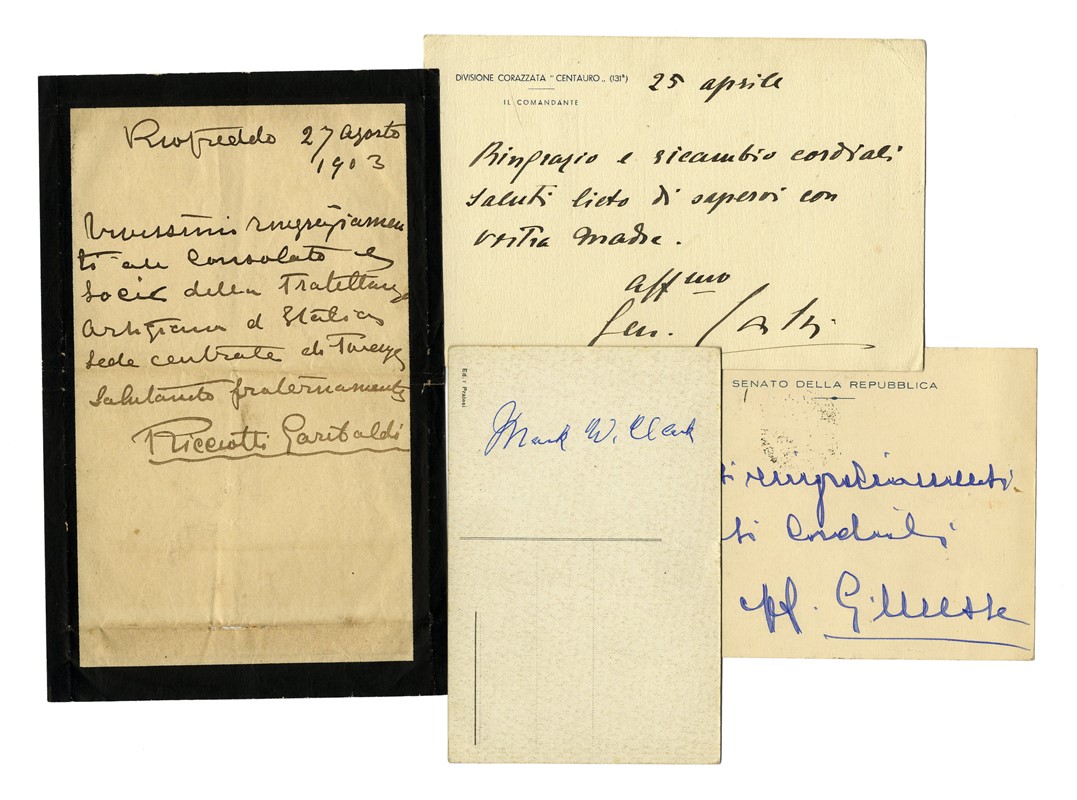 Riofreddo 27 agosto
1903
Vivissimi ringraziamen
ti al Consolato e
Soci della Fratellanza
Artigiana d'Italia
Sede centrale di Firenze
Salutando fraternamente
Ricciotti Garibaldi
DIVISIONE CORAZZATA "CENTAURO„ (131ª)
IL COMANDANTE
25 aprile
Ringrazio e ricambio cordiali
saluti lieto di sapervi con
vostra madre.
affmo
Gen.
Ed. : Pralesi
Mark W. Clark
SENATO DELLA REPUBBLICA
ti ringraziamenti.
ti cordiali